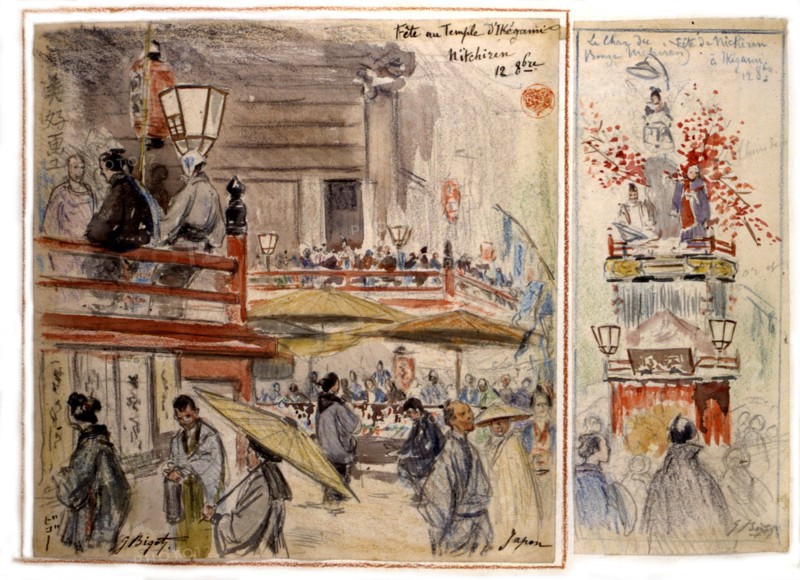 Fête au Temple d'Ikégami
Nitchiren
12 8bre
美好画工
ビゴー
G Bigot
Japon
Le Char du
Fête de Nichiren
à Ikégami
12 8
G Bigot